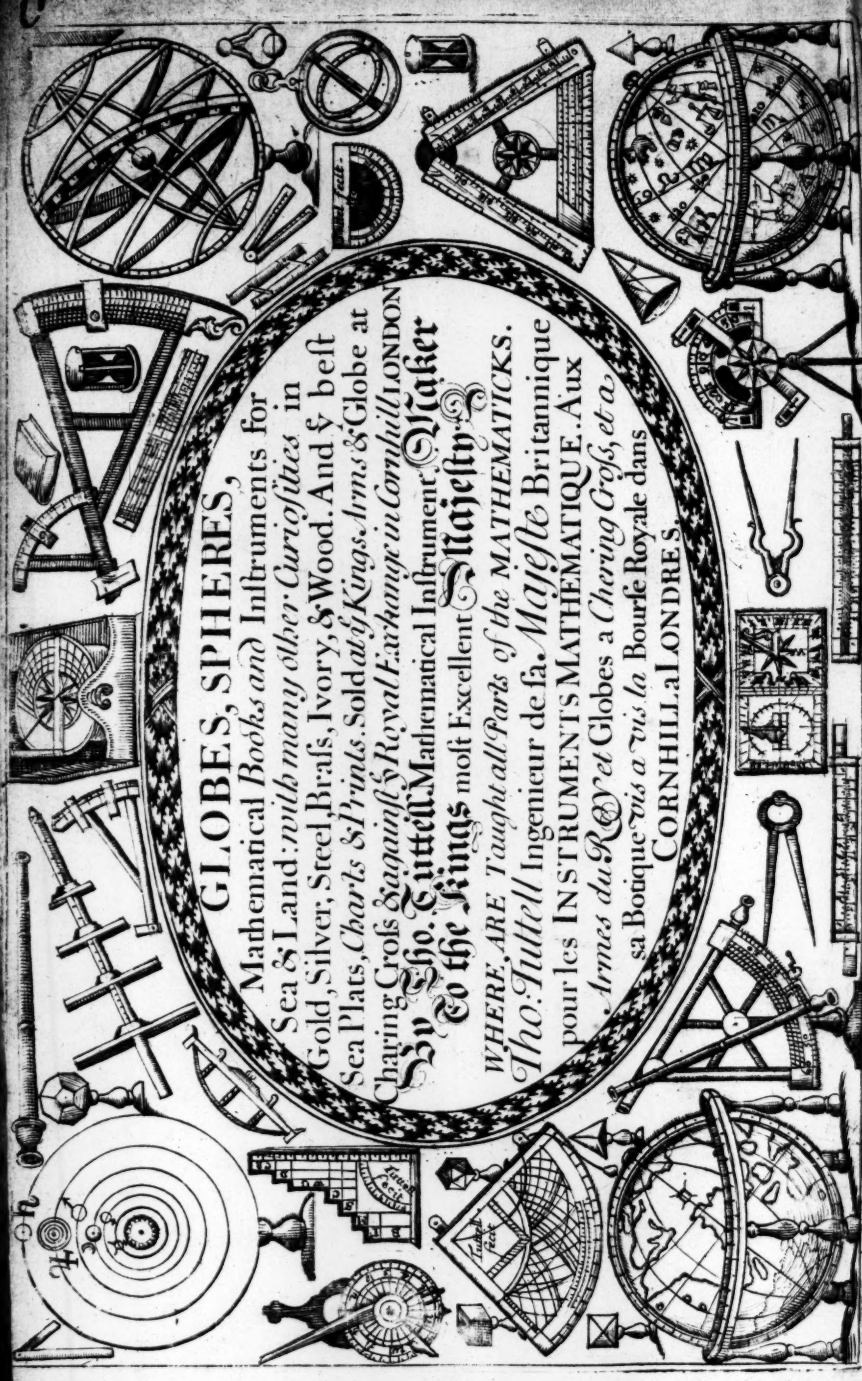 GLOBES, SPHERES,
Mathematical Books and Inſtruments for
Sea & Land: with many other Curioſities in
Gold, Silver, Steel, Braſs, Ivory, & Wood. And yͤ beſt
Sea Plats, Charts & Prints. Sold at yͤ Kings Arms & Globe at
Charing Croſs & againſt yͤ Royal Exchange in Cornhill LONDON
By Tho. Tuttell Mathematical Inſtrument Maker
To the Kings moſt Excellent Majeſty
WHERE ARE Taught all Parts of the MATHEMATICKS.
Tho: Tuttell Ingenieur de ſa Majeſte Britannique
pour les INSTRUMENTS MATHEMATIQUE. Aux
Armes du Roy et Globes a Chering Croſs, et a
sa Botique vis a vis la Bourſe Royale dans
CORNHILL a LONDRES.
Tuttell
fecit
Tuttell
fecit